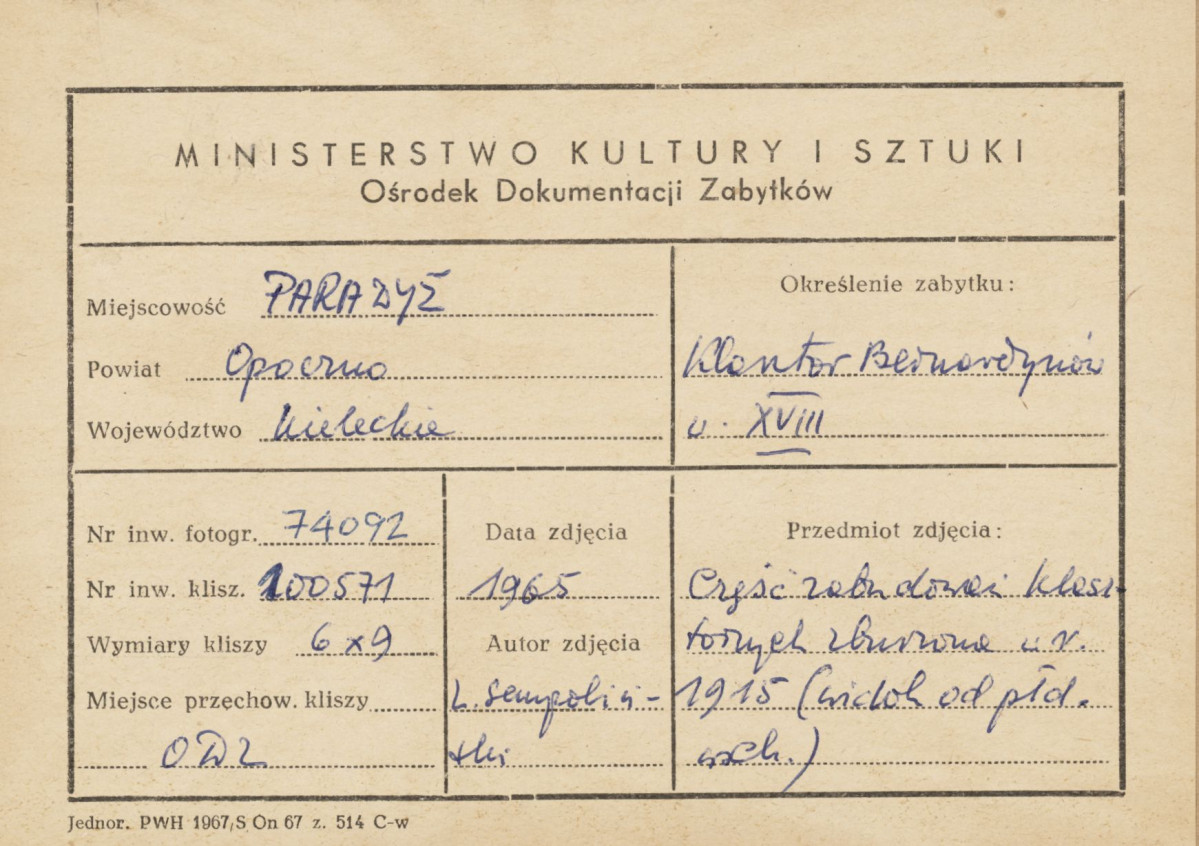 MINISTERSTWO KULTURY I SZTUKI
Ośrodek Dokumentacji Zabytków
Miejscowość PARADYŻ
Powiat Opoczno
Województwo Kieleckie
Określenie zabytku:
Klasztor Bernardynów
w. XVIII
Nr inw. fotogr. 74092
Nr inw. klisz. 100571
Wymiary kliszy 6x9
Miejsce przechow. kliszy
ODZ
Data zdjęcia
1965
Autor zdjęcia
L. Sempoliń-
ski
Przedmiot zdjęcia:
Część zabudowań klasz-
tornych zburzona w r.
1915 (widok od płd.
wsch.)
Jednor. PWH 1967/S On 67 z. 514 C-w